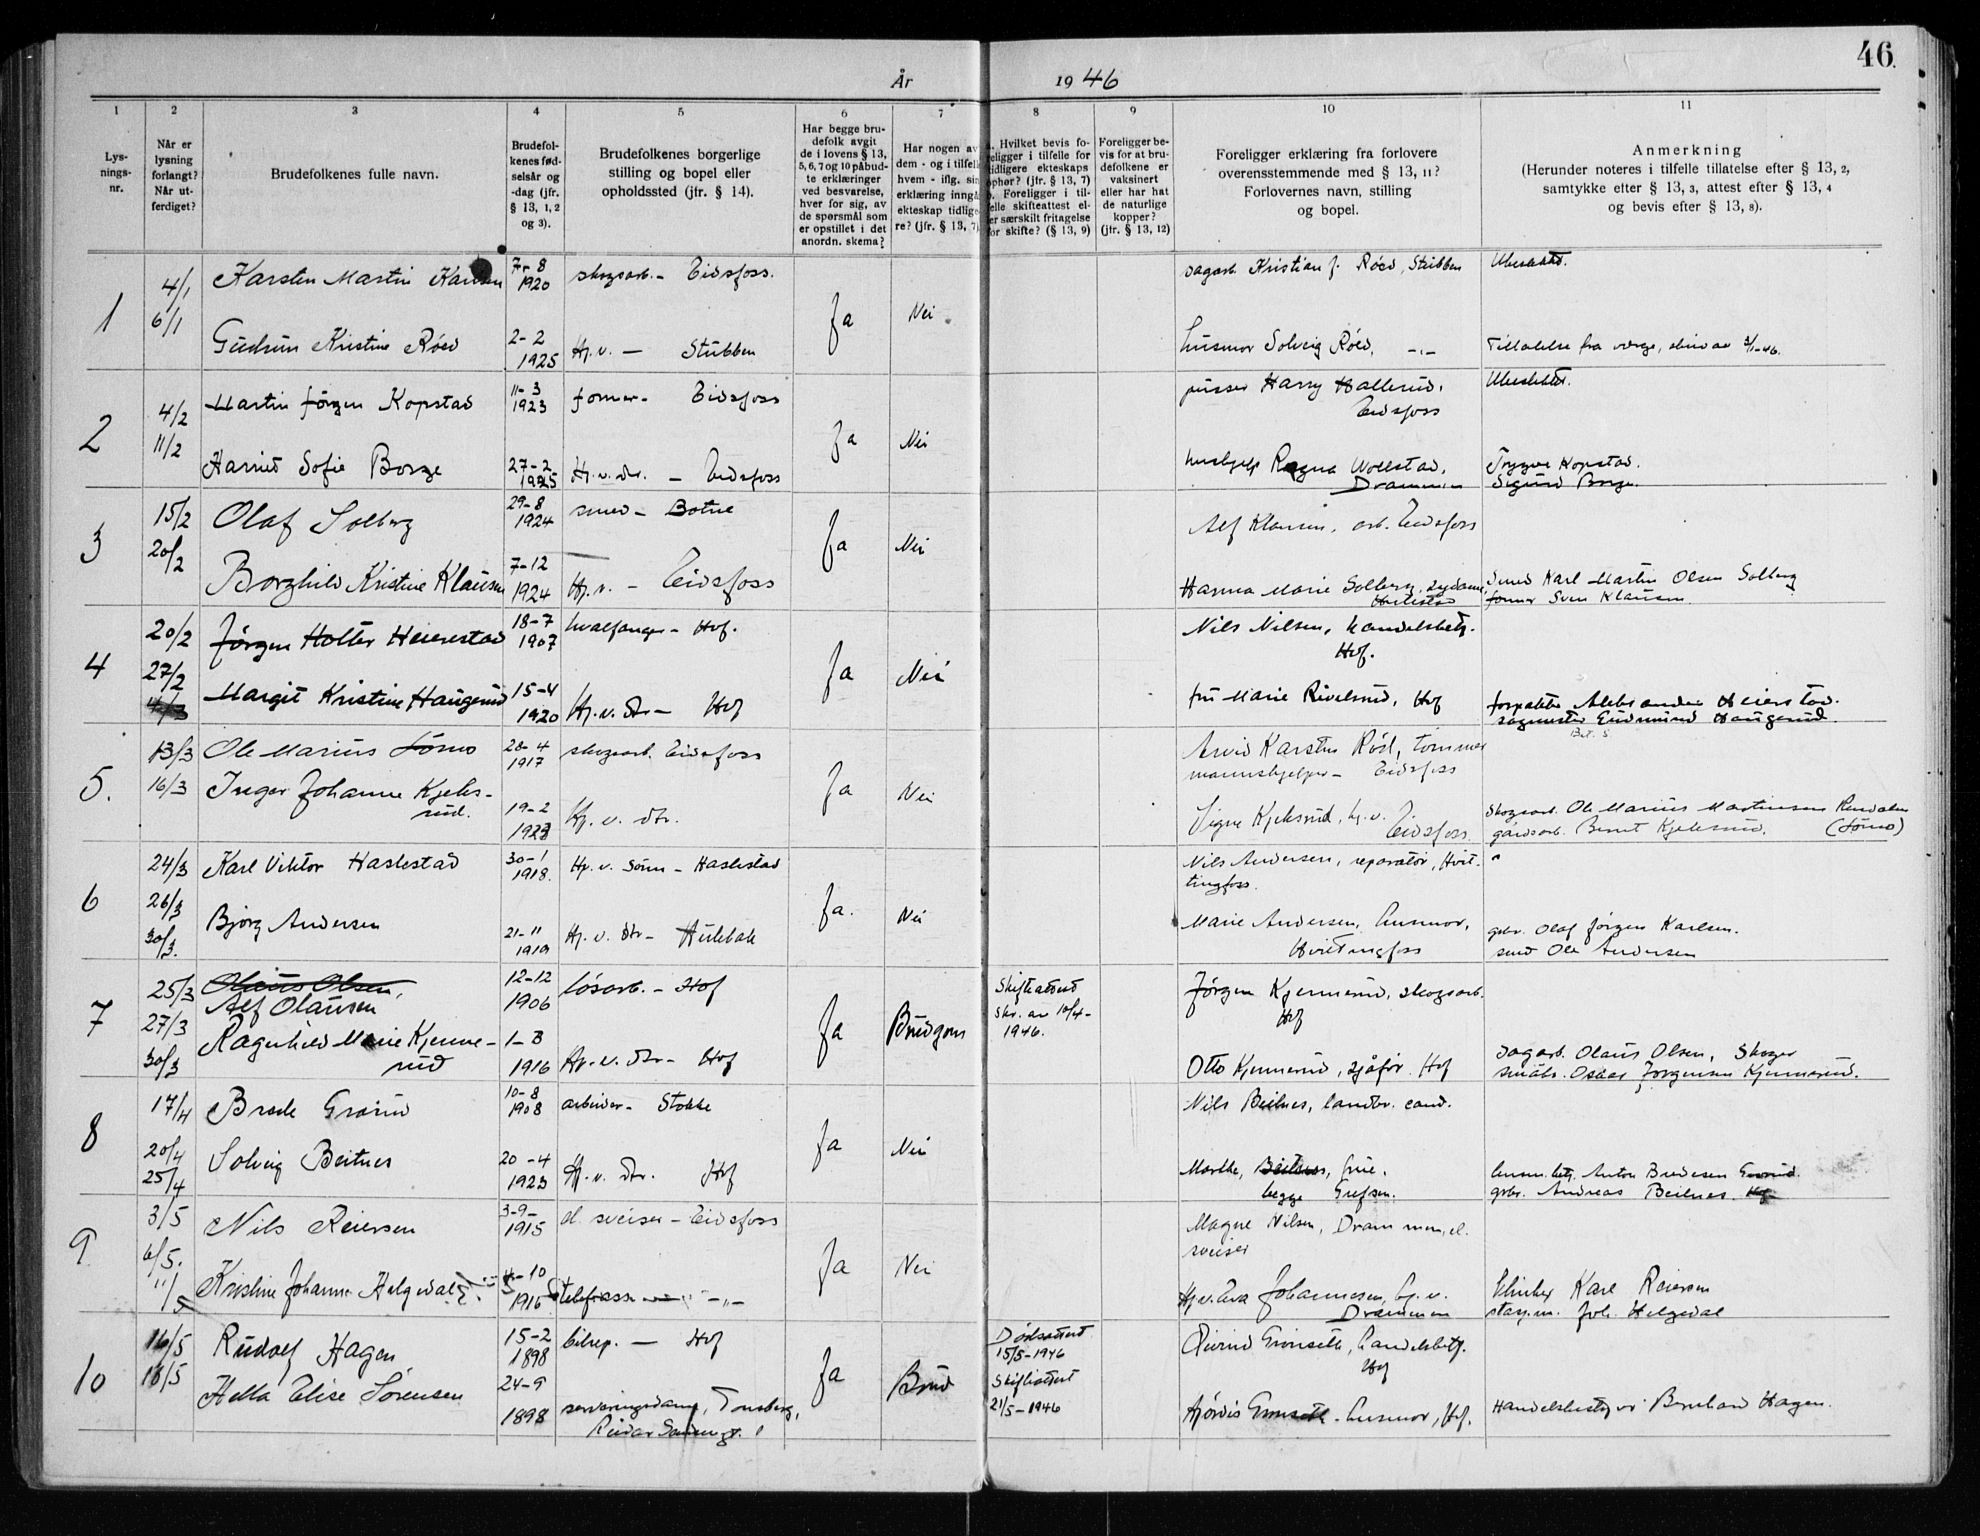 46.
År 1946
1 2 3 4 5 6 7 8 9 10 11
Lys-
nings-
nr.
Når er
lysning
forlangt?
Når ut-
ferdiget?
Brudefolkenes fulle navn.
Brudefol-
kenes fød-
selsår og
-dag (jfr.
§ 13, 1, 2
og 3).
Brudefolkenes borgerlige
stilling og bopel eller
opholdssted (jfr. § 14).
Har begge bru-
defolk avgit
de i lovens § 13,
5, 6, 7 og 10 påbud-
te erklæringer
ved besvarelse,
hver for sig, av
de spørsmål som
er opstillet i det
anordn. skema?
Har nogen av
dem - og i tilfelle
hvem - iflg. sin
erklæring inngå
ekteskap tidlige-
re? (jfr. § 13, 7)
Hvilket bevis fo-
religger i tilfelle for
tidligere ekteskaps
ophør? (jfr. § 13, 7)
b. Foreligger i til-
felle skifteattest el-
er særskilt fritagelse
for skifte? (§ 13, 9)
Foreligger be-
vis for at bru-
defolkene er
vaksinert
eller har hat
de naturlige
kopper?
(jfr. § 13, 12)
Foreligger erklæring fra forlovere
overensstemmende med § 13, 11?
Forlovernes navn, stilling
og bopel.
Anmerkning
(Herunder noteres i tilfelle tillatelse efter § 13, 2,
samtykke efter § 13, 3, attest efter § 13, 4
og bevis efter § 13, 8).
1
4/1
6/1
Karsten Martin Karlsen 7-8 1920 skogsarb. - Eidsfoss.
Ja Nei
dagarb. Kristian J. Röed, Stubben
Gudrun Kristine Röed 2-2 1925 Hj.v. - Stubben
husmor Solveig Röed, -"-
Tillatelse fra verge, 3/1-46.
2
4/2
11/2
Martin Jörgen Kopstad 11-3 1923 former - Eidsfoss
Ja Nei
pusser Harry Hallerud,
Eidsfoss
Harriet Sofie Borge 27-2 1925 Hj.v. dtr. - Eidsfoss
hushjelp Ragna Wollstad,
Drammen
Trygve Kopstad.
Sigurd Borge.
3
15/2
20/2
Olaf Solberg 29-8 1924 smed - Botne
Ja Nei
Alf Klausen, arb. Eidsfoss
Borghild Kristine Klausen 7-12 1924 Hj.v. - Eidsfoss
Hanna Marie Solberg, sydame,
Smed Karl Martin Olsen Solberg
former Sven Klausen.
4
20/2
27/2
Jörgen Holter Heierstad 18-7 1907 hvalfanger - Hof.
Ja Nei
Nils Nilsen, handelsbetj.
Hof.
Margit Kristine Haugerud 15-4 1920 Hj.v. dtr - Hof
fru Marie Rivelsrud, Hof
forpakter Aleksander Heierstad.
sagmester Gudmund Haugerud.
5.
13/3
16/3
Ole Marius Sörno 28-4 1917 skogsarb. Eidsfoss
Ja Nei
Arvid Karsten Röd, tömmer
mannshjelper - Eidsfoss
Inger Johanne Kjeks-
rud. 19-2 1923 Hj.v. dtr.
Signe Kjeksrud, hj.v.
Eidsfoss.
skogsarb. Ole Marius Martinsen
gårdsarb. Bernt Kjeksrud. (Sörno)
6
24/3
26/3
30/3.
Karl Viktor Haslestad 30-1 1918. Hj.v. sönn - Haslestad
Ja. Nei
Nils Andersen, reparatör, Hvit-
tingfoss.
Björg Andersen 21-11 1919 Hj.v. dtr - Hulebak
Marie Andersen, husmor,
Hvittingfoss
gbr. Olaf Jörgen Karlsen.
smed Ole Andersen
7
25/3
27/3
30/3
Olaus Olsen,
Alf Olaussen 12-12 1906 lösarb. - Hof
Ja Brudgom
Skifteattest
skr. av 10/4-
1946.
Jörgen Kjennerud, skogsarb.
Hof
Ragnhild Marie Kjenne-
rud 1-3 1916 Hj.v. dtr - Hof
Otto Kjennerud, sjåför. Hof
dagarb. Olaus Olsen, Skoger
småbr. Oskar Jörgensen Kjennerud.
8
17/4
20/4
25/4
Brede Grorud 10-8 1908 arbeider - Stokke
Ja Nei
Nils Beitnes, landbr. cand.
Solveig Beitnes 20-4 1923 Hj.v. dtr. Hof
Marthe, Beitnes, frue.
begge Grefsen.
Anton Bredesen Grorud.
gbr. Andreas Beitnes. Hof
9.
3/5
6/5.
11/5
Nils Reiersen 3-9- 1915 el. sveiser - Eidsfoss
Ja Nei
Magne Nilsen, Drammen, el.
sveiser
Kristine Johanne Helgedal -10 1916 -"-
Hj.v. Eva Johannesen, hj.v.
Drammen
Karl Reiersen
stasj.m. Joh. Helgedal
10
16/5
16/5
Rudolf Hagen 15-2 1898 bilrep. - Hof
Ja Brud
Dödsattest
15/5-1946
Skifteattest
21/5-1946
Eivind Gronseth, handelsbetj.
Hof
Hella Elise Sörensen 24-9 1898 serveringsdame, Tönsberg,
Hjördis Gronseth - husmor, Hof.
Handelsbestyrer Bernhard Hagen.